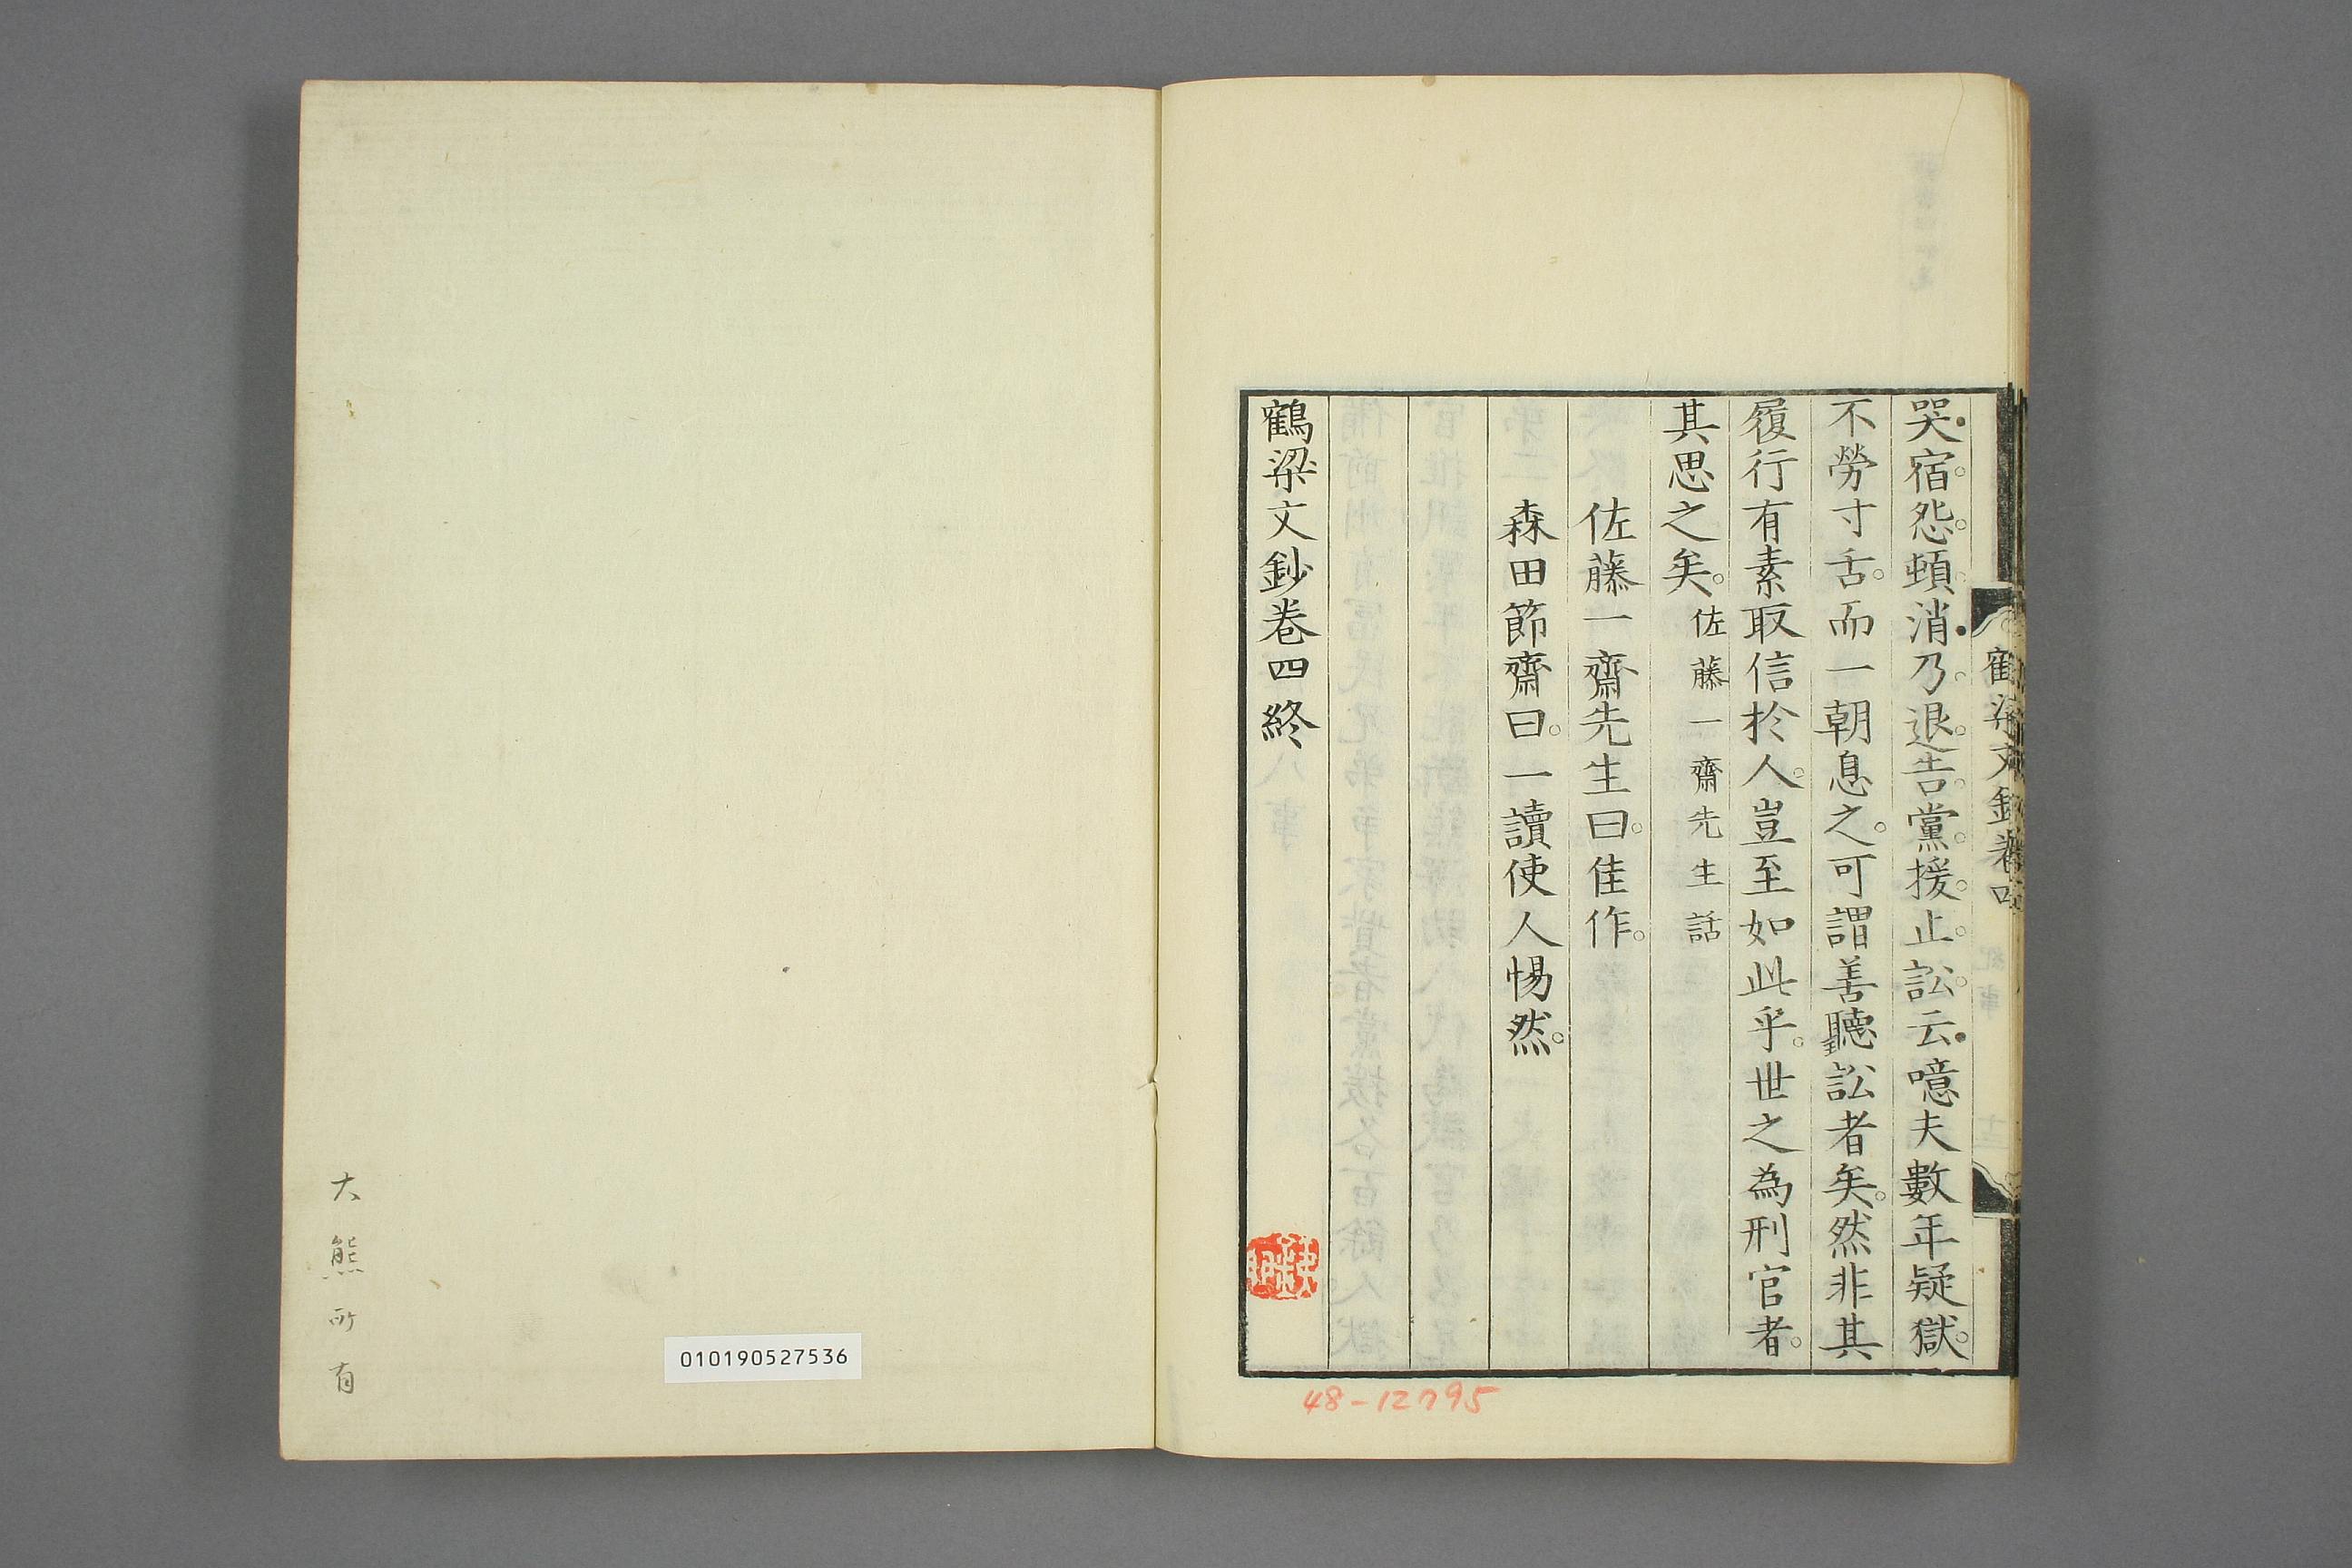 哭宿怨頓消乃退告黨援止訟云噫夫數年疑獄
不勞寸舌而一朝息之可謂善聽訟者矣然非其
履行有素取信於人豈至如此乎世之為刑官者
其思之矣佐藤一齋先生話
佐藤一齋先生曰佳作
森田節齋曰一讀使人惕然
鶴梁文鈔卷四終
48-12795
大熊所有
010190527536